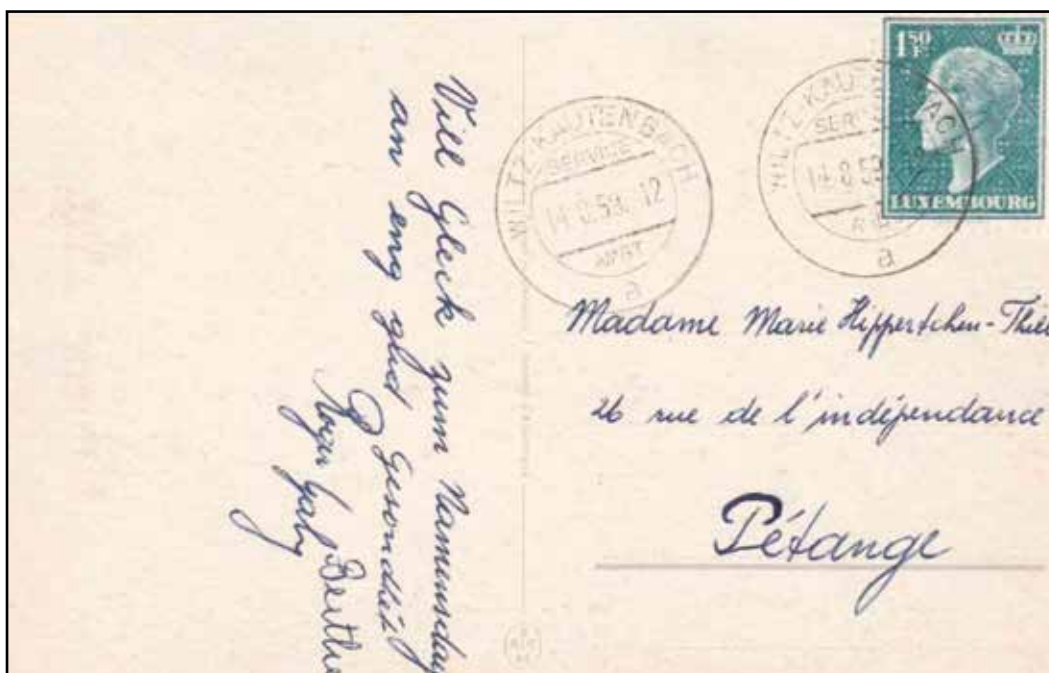 Vill Gleck zum Namensdag
an eng glud Gesondhéit
Roger Gaby
Berthe
WILTZ-KAUTENBACH
SERVICE
14.8.59. 12
AMBT
a
WILTZ-KAUTENBACH
14.8.59
a
1 50 F
LUXEMBOURG
Madame Marie Hippertchen-
26 rue de l'indépendance
Pétange